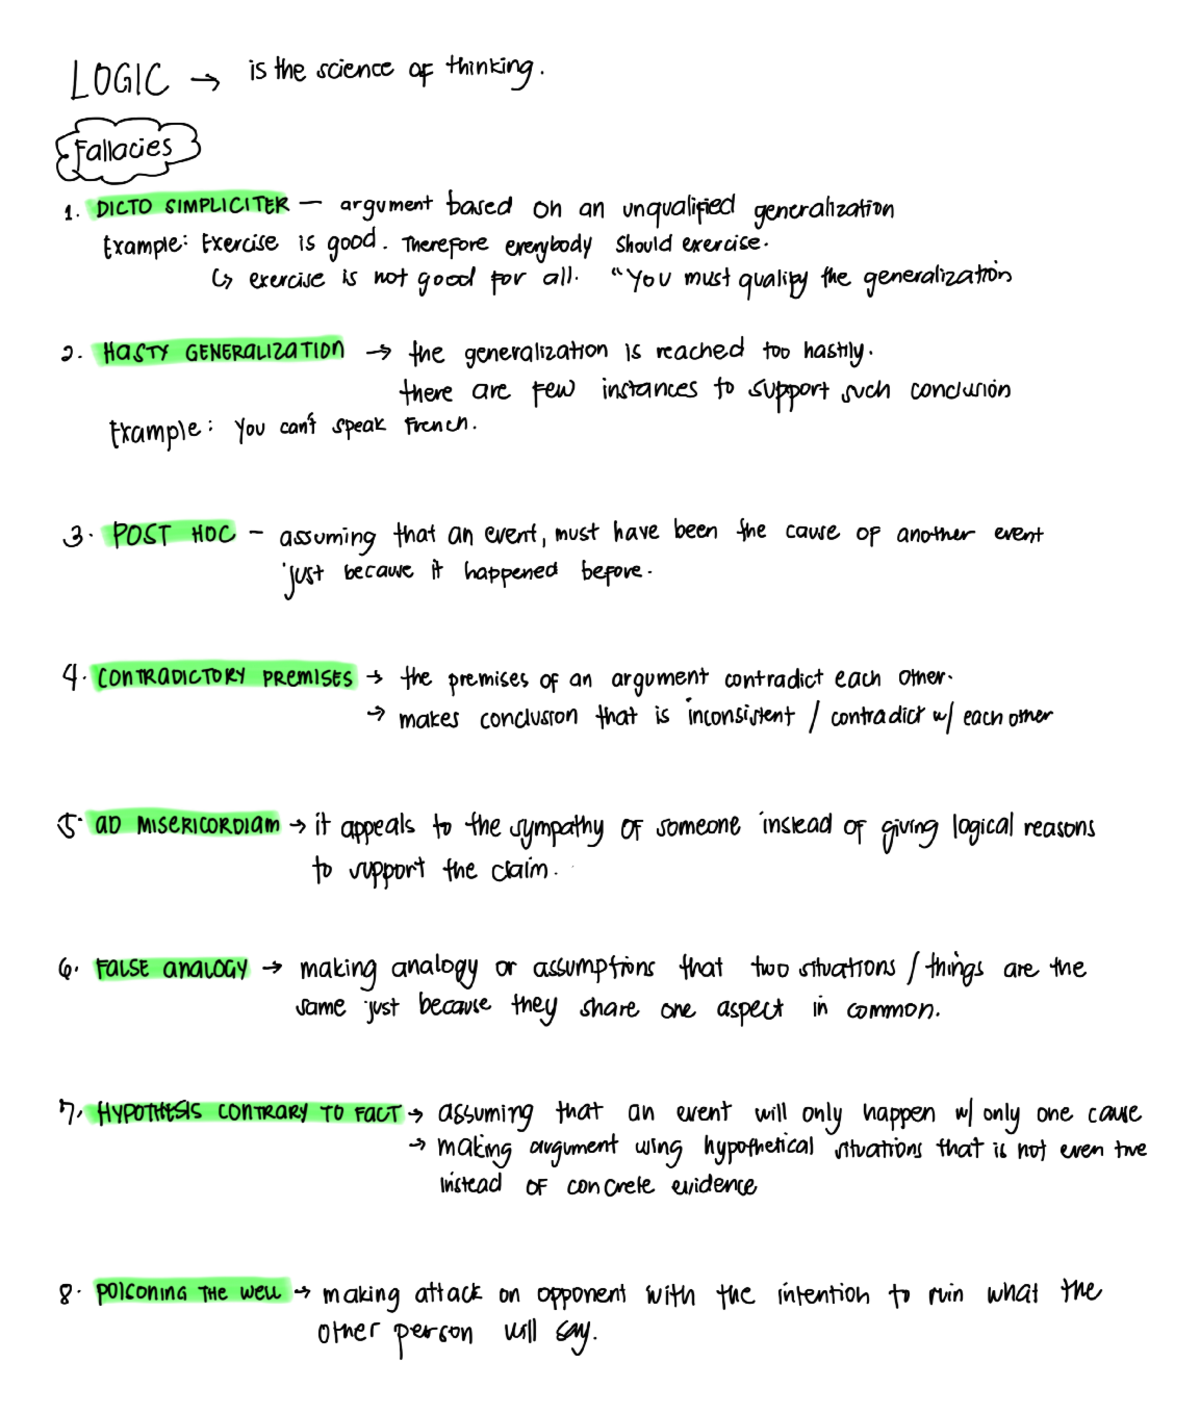 LOGIC → is the science of thinking.
Fallacies
1. DICTO SIMPLICITER — argument based on an unqualified generalization
Example: Exercise is good. Therefore everybody should exercise.
↳ exercise is not good for all. "You must qualify the generalization
2. HASTY GENERALIZATION → the generalization is reached too hastily.
there are few instances to support such conclusion
Example: You can't speak French.
3. POST HOC – assuming that an event, must have been the cause of another event
just because it happened before.
4. CONTRADICTORY PREMISES → the premises of an argument contradict each other.
→ makes conclusion that is inconsistent / contradict w/ each other
5. AD MISERICORDIAM → it appeals to the sympathy of someone instead of giving logical reasons
to support the claim.
6. FALSE ANALOGY → making analogy or assumptions that two situations / things are the
same just because they share one aspect in common.
7. HYPOTHESIS CONTRARY TO FACT → assuming that an event will only happen w/ only one cause
→ making argument using hypothetical situations that is not even true
instead of concrete evidence
8. POICONING THE WELL → making attack on opponent with the intention to ruin what the
other person will say.